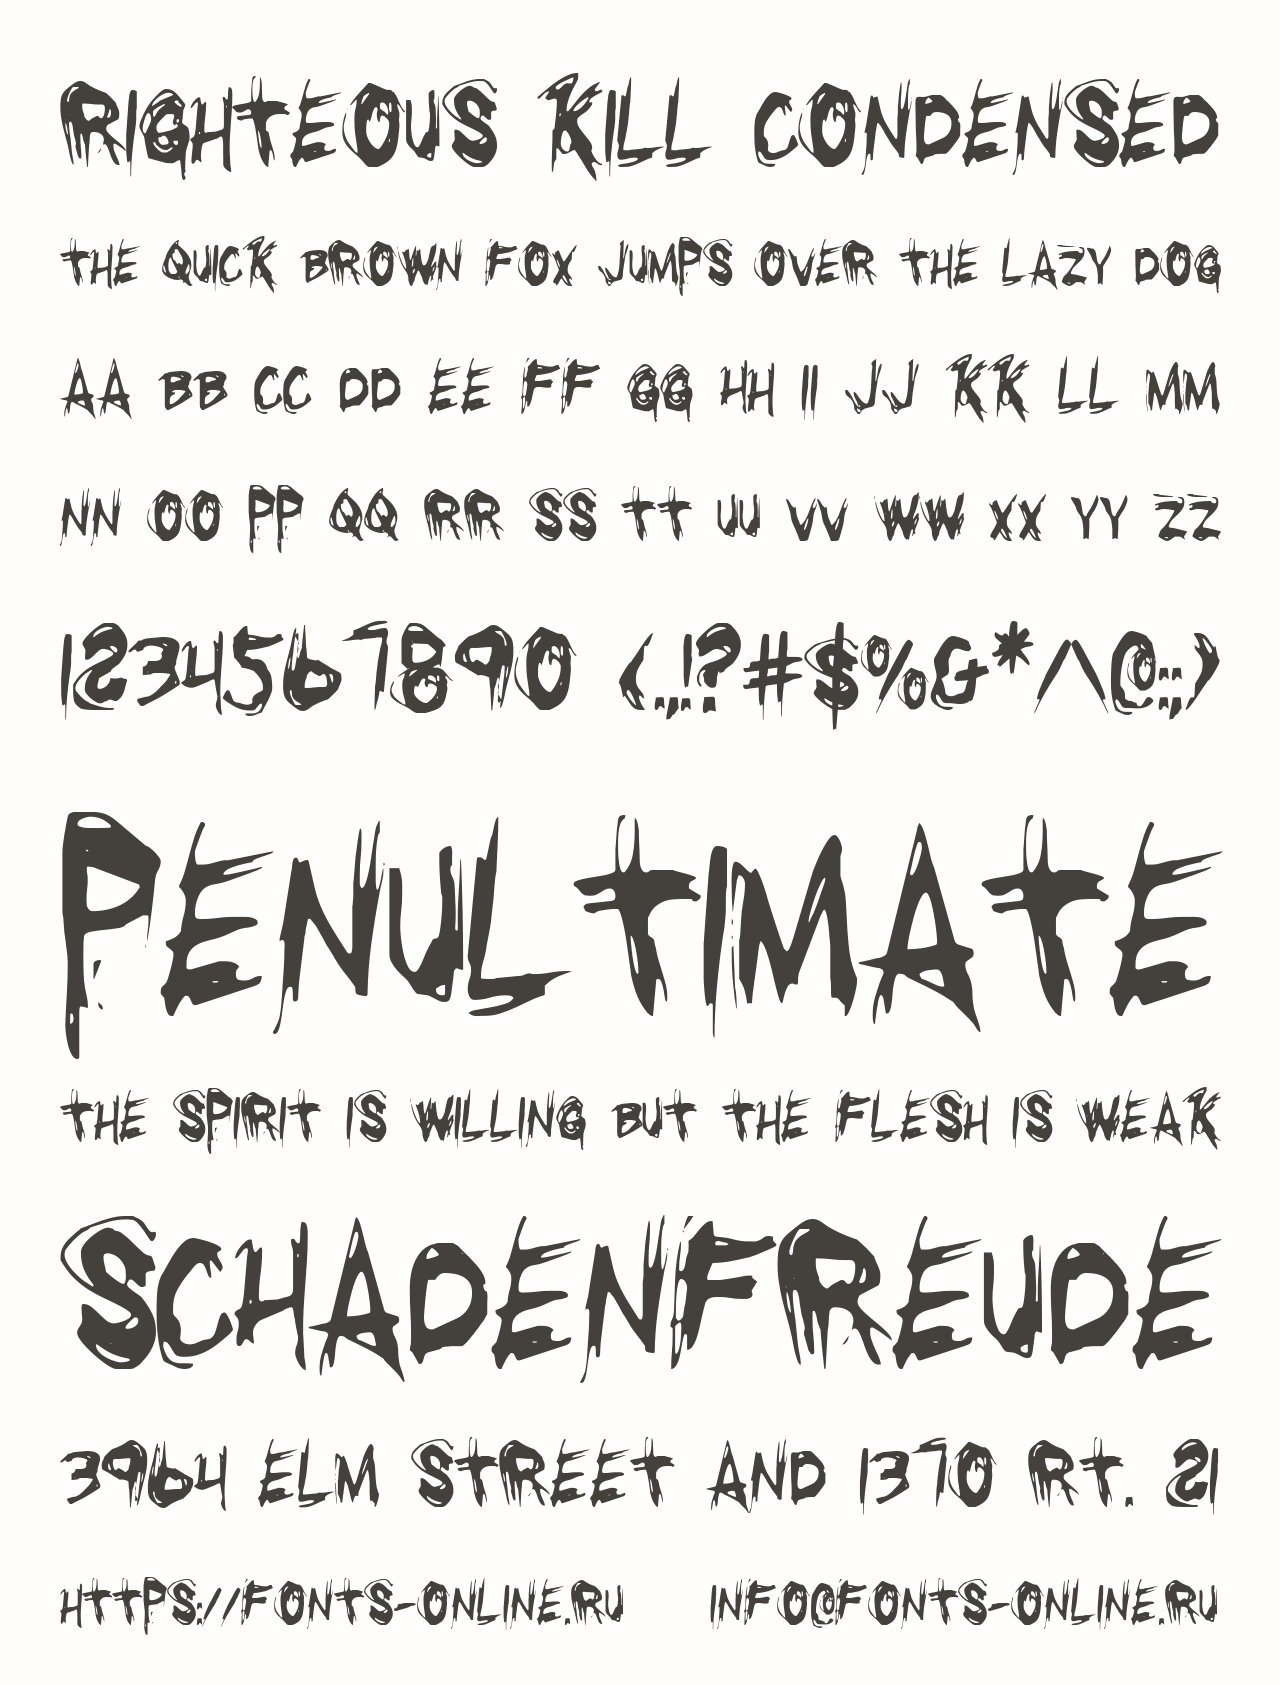 RIGHTEOUS KILL CONDENSED
THE QUICK BROWN FOX JUMPS OVER THE LAZY DOG
AA BB CC DD EE FF GG HH II JJ KK LL MM
NN OO PP QQ RR SS TT UU VV WW XX YY ZZ
1234567890 (.,!?#$%&*/\@:;)
PENULTIMATE
THE SPIRIT IS WILLING BUT THE FLESH IS WEAK
SCHADENFREUDE
3964 ELM STREET AND 1370 RT. 21
HTTPS://FONTS-ONLINE.RU INFO@FONTS-ONLINE.RU